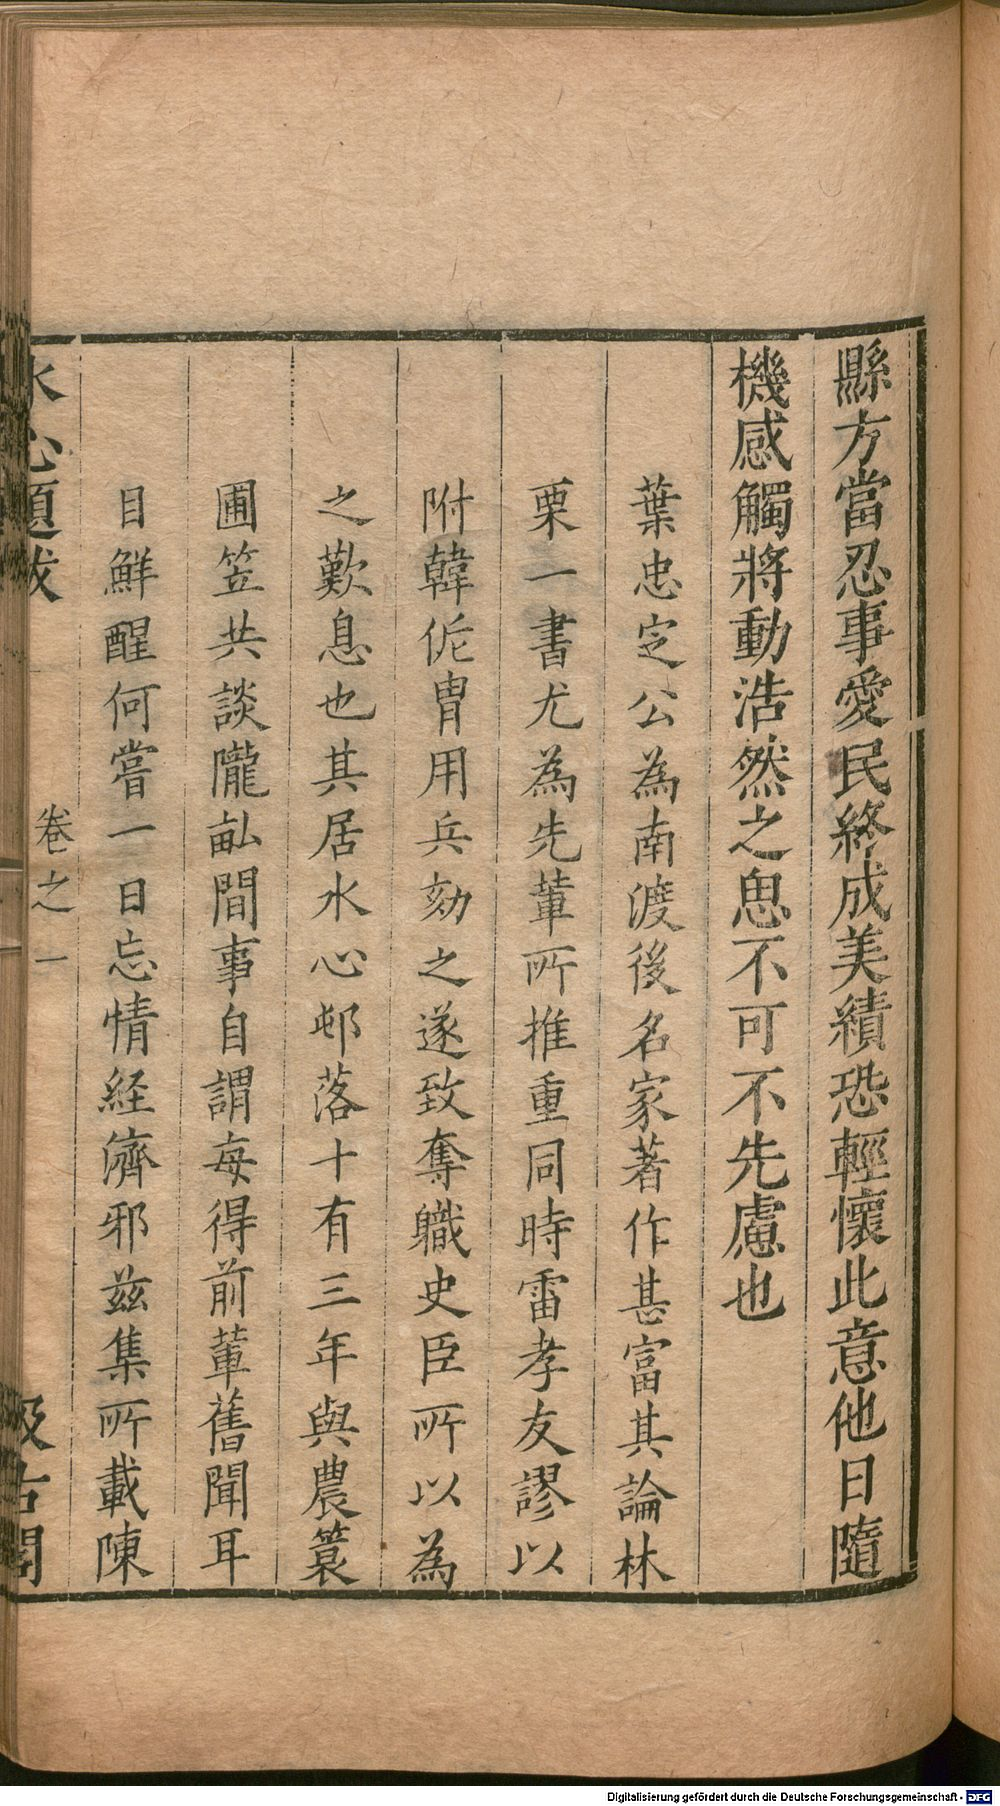 縣方當忍事愛民終成美績恐輕懷此意他日隨
機感觸將動浩然之思不可不先慮也
葉忠定公為南渡後名家著作甚富其論林
栗一書尤為先軰所推重同時雷孝友謬以
附韓侂胄用兵劾之遂致奪職史臣所以為
之歎息也其居水心邨落十有三年與農簑
圃笠共談隴畆間事自謂每得前軰舊聞耳
目鮮醒何嘗一日忘情経濟邪兹集所載陳
水心題跋 卷之一 汲古閣
Digitalisierung gefördert durch die Deutsche Forschungsgemeinschaft - DFG